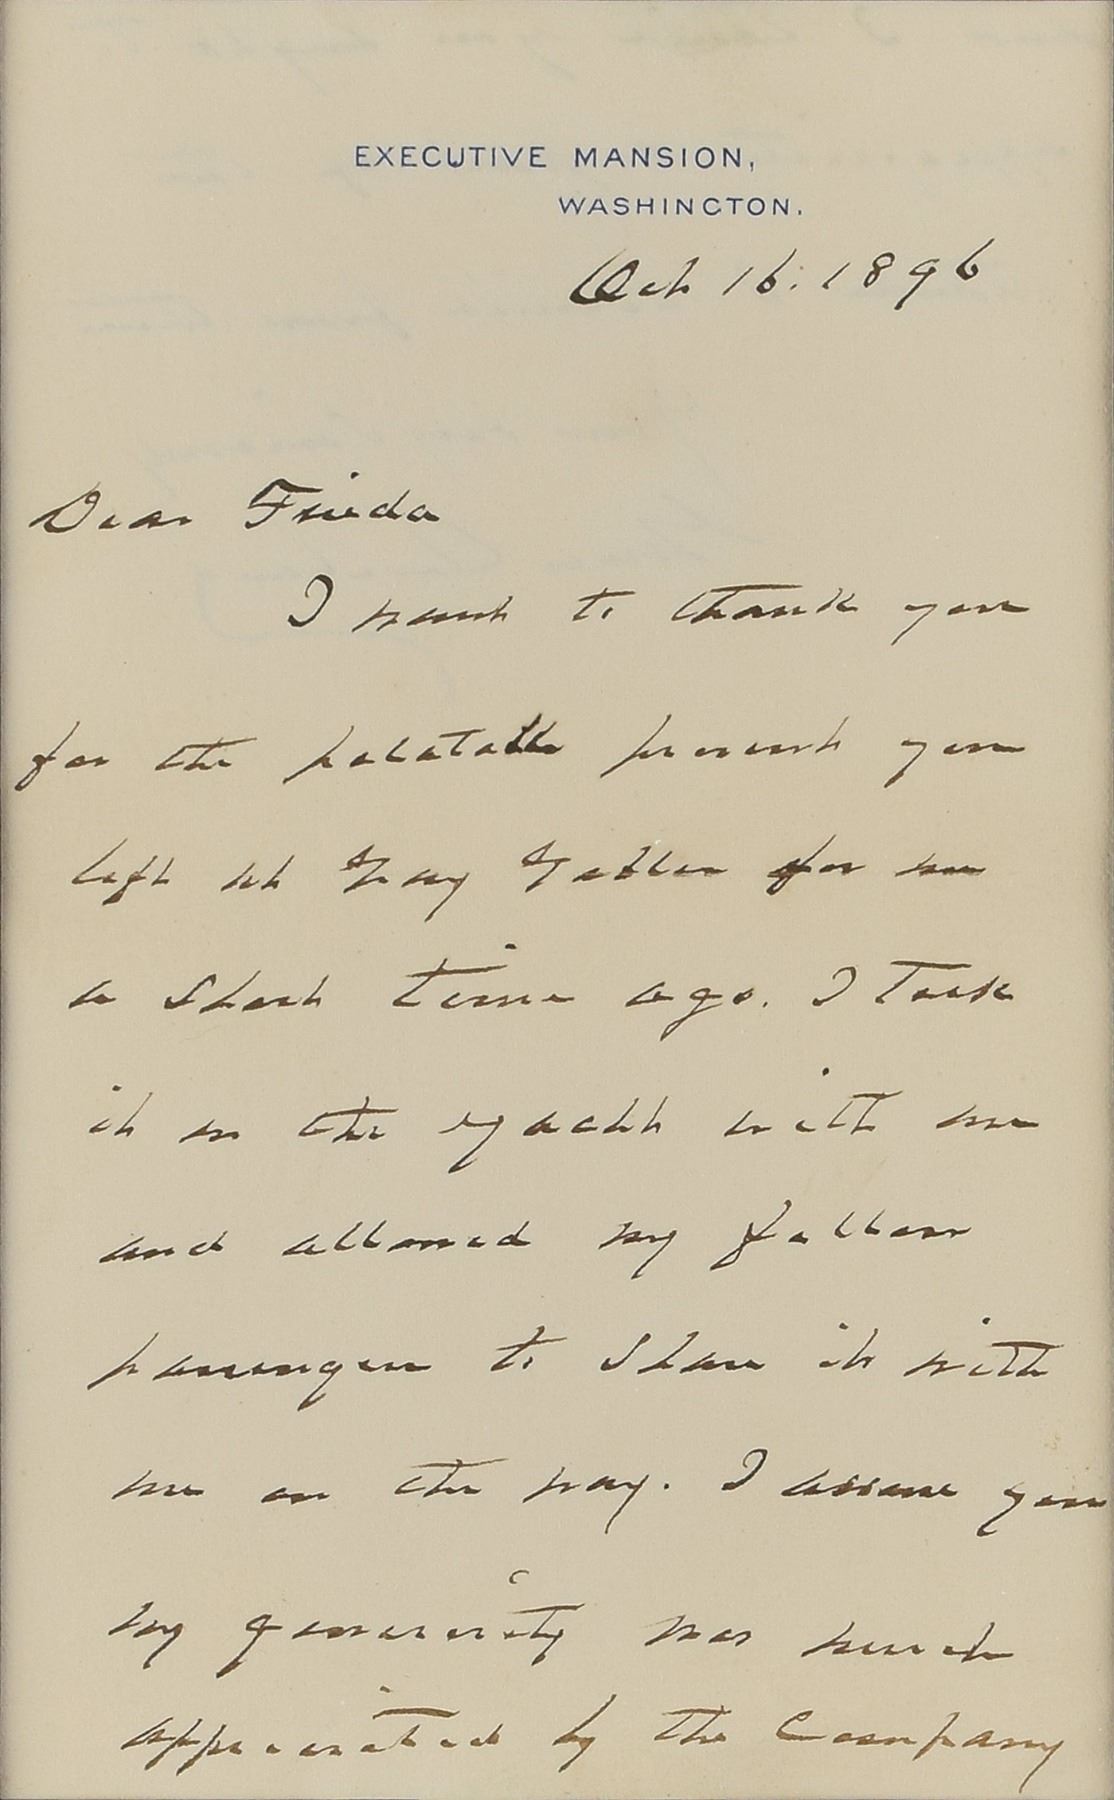 EXECUTIVE MANSION,
WASHINGTON.
Oct 16. 1896
Dear Frieda
I want to thank you
for the palatable present you
left at Gray Gables for me
a short time ago. I took
it on the yacht with me
and allowed my fellow
passengers to share it with
me on the way. I assure you
my generosity was much
appreciated by the Company